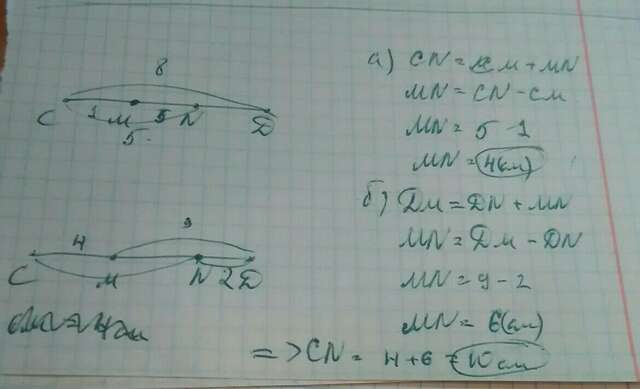 8
C 1 M 3 N D
5
а) CN = CM + MN
MN = CN - CM
MN = 5 - 1
MN = 4(см)
9
4
C M N 2 D
б) DM = DN + MN
MN = DM - DN
MN = 9 - 2
MN = 6(см)
=> CN = 4 + 6 = 10 см